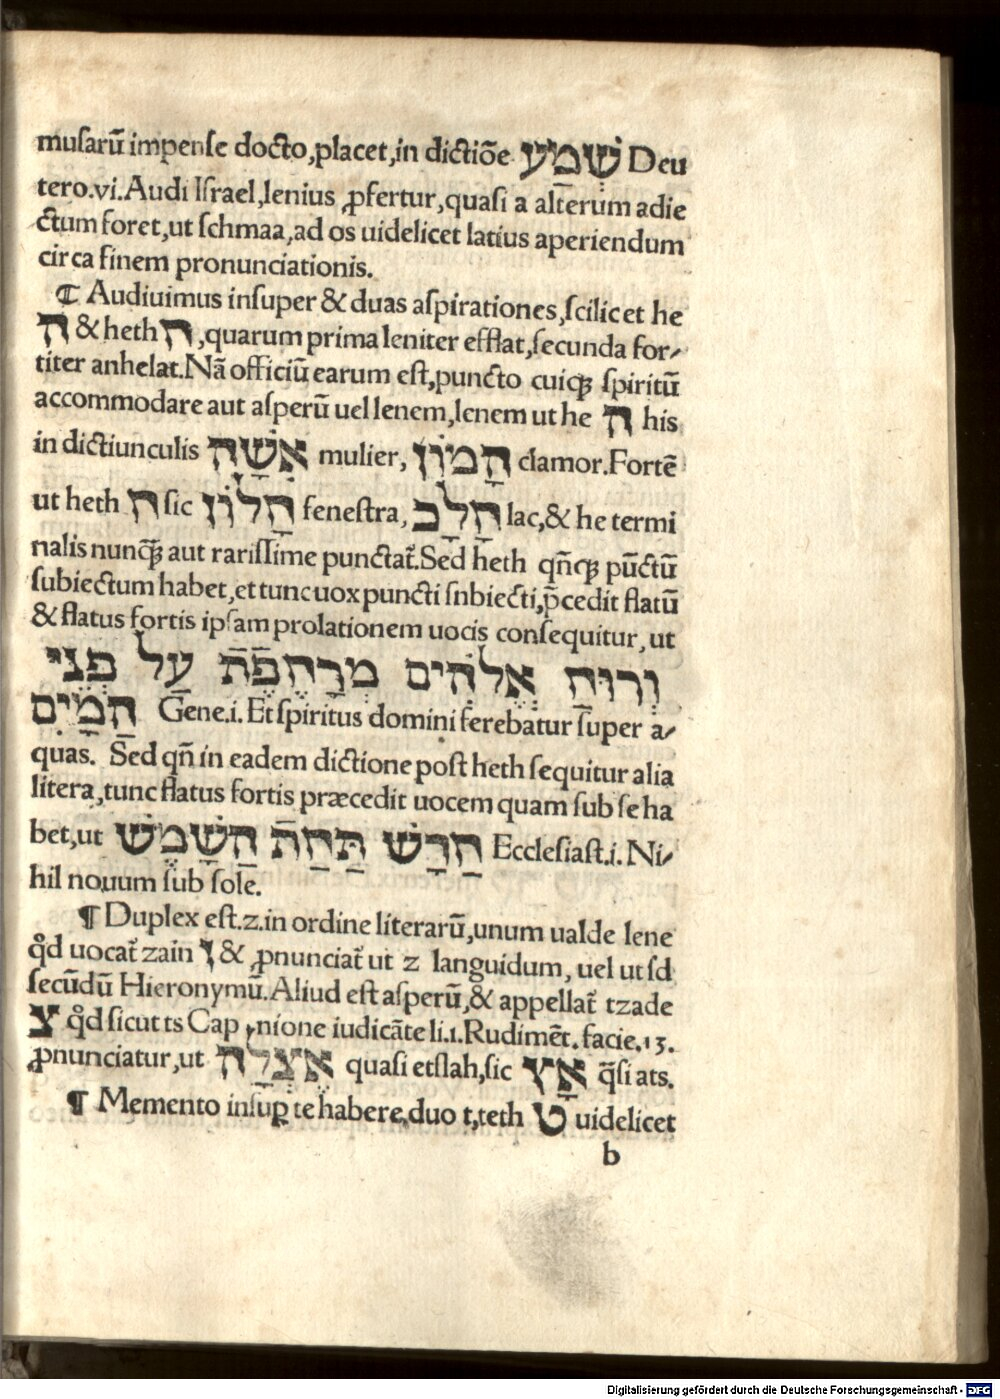 musarū impense docto,placet,in dictiōe שְׁמַע Deu
tero.vi.Audi Israel,lenius ꝓfertur,quasi a alterum adie
ctum foret,ut schmaa,ad os uidelicet latius aperiendum
circa finem pronunciationis.
¶ Audiuimus insuper & duas aspirationes,scilicet he
ה & heth ח,quarum prima leniter efflat,secunda for⸗
titer anhelat.Nā officiū earum est,puncto cuiqꝫ spiritū
accommodare aut asperū uel lenem,lenem ut he ה his
in dictiunculis אִשָּׁה mulier, הָמוֹן clamor.Fortē
ut heth ח sic חָלוֹן fenestra, חָלָב lac,& he termi
nalis nunqꝫ aut rarissime punctat̄.Sed heth qn̄cqꝫ pūctū
subiectum habet,et tunc uox puncti snbiecti,p̄cedit flatū
& flatus fortis ipsam prolationem uocis consequitur,ut
וְרוּחַ אֱלֹהִים מְרַחֶפֶת עַל פְּנֵי
הַמָּיִם Gene.i.Et spiritus domini ferebatur super a⸗
quas. Sed qn̄ in eadem dictione post heth sequitur alia
litera,tunc flatus fortis præcedit uocem quam sub se ha
bet,ut חַדָשׁ תַּחַת הַשָּׁמֶשׁ Ecclesiast.i.Ni⸗
hil nouum sub sole.
¶ Duplex est.z.in ordine literarū,unum ualde lene
qd̄ uocat̄ zain ז & ꝓnunciat̄ ut z languidum, uel ut sd
secūdū Hieronymū.Aliud est asperū,& appellat̄ tzade
צ qd̄ sicut ts Capnione iudicāte li.1.Rudimēt.facie.13.
ꝓnunciatur,ut אֶצְלָה quasi etslah,sic אָץ q̄si ats.
¶ Memento insuꝑ te habere,duo t,teth ט uidelicet
b
Digitalisierung gefördert durch die Deutsche Forschungsgemeinschaft - DFG